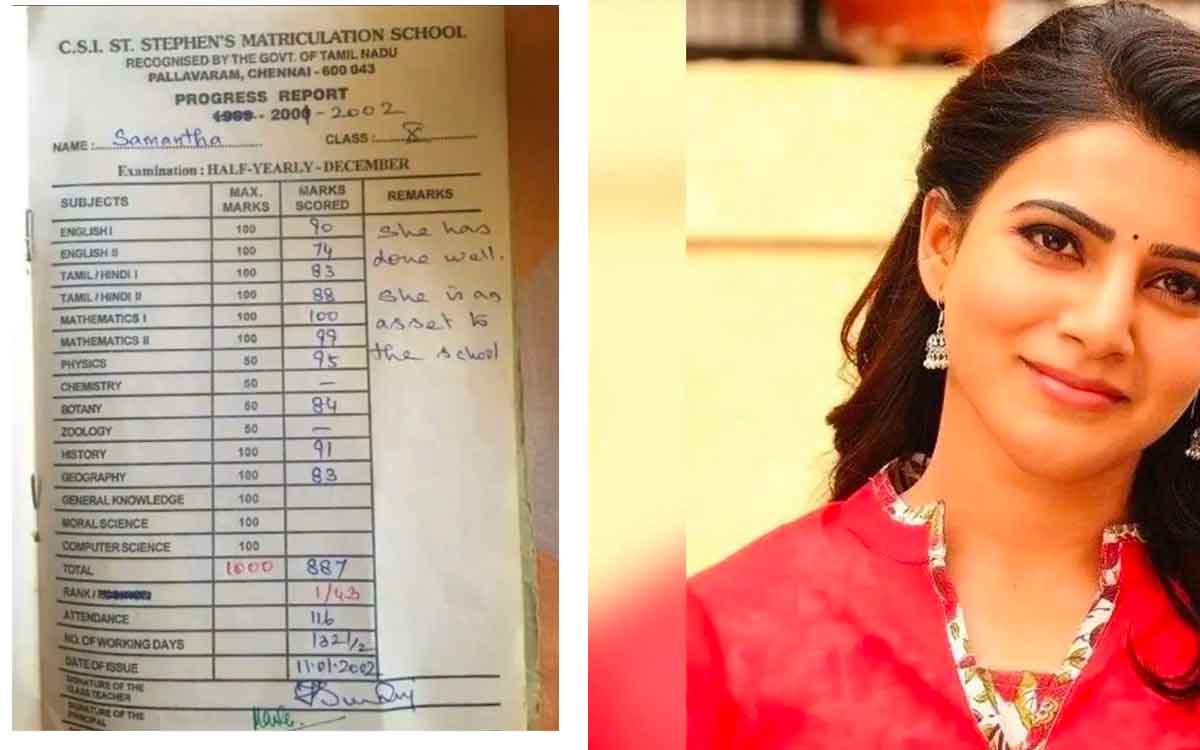 C.S.I. ST. STEPHEN'S MATRICULATION SCHOOL
RECOGNISED BY THE GOVT. OF TAMIL NADU
PALLAVARAM, CHENNAI - 600 043
PROGRESS REPORT
1999 - 2001 - 2002
NAME : Samantha CLASS : X
Examination : HALF-YEARLY - DECEMBER
SUBJECTS MAX. MARKS MARKS SCORED REMARKS
ENGLISH I 100 90 She has
ENGLISH II 100 74 done well.
TAMIL / HINDI I 100 83
TAMIL / HINDI II 100 88 She is an
MATHEMATICS I 100 100 asset to
MATHEMATICS II 100 99 the school
PHYSICS 50 95
CHEMISTRY 50 —
BOTANY 50 84
ZOOLOGY 50 —
HISTORY 100 91
GEOGRAPHY 100 83
GENERAL KNOWLEDGE 100
MORAL SCIENCE 100
COMPUTER SCIENCE 100
TOTAL 1000 887
RANK / 1/43
ATTENDANCE 116
NO. OF WORKING DAYS 132 1/2
DATE OF ISSUE 11.01.2002
SIGNATURE OF THE CLASS TEACHER
SIGNATURE OF THE PRINCIPAL